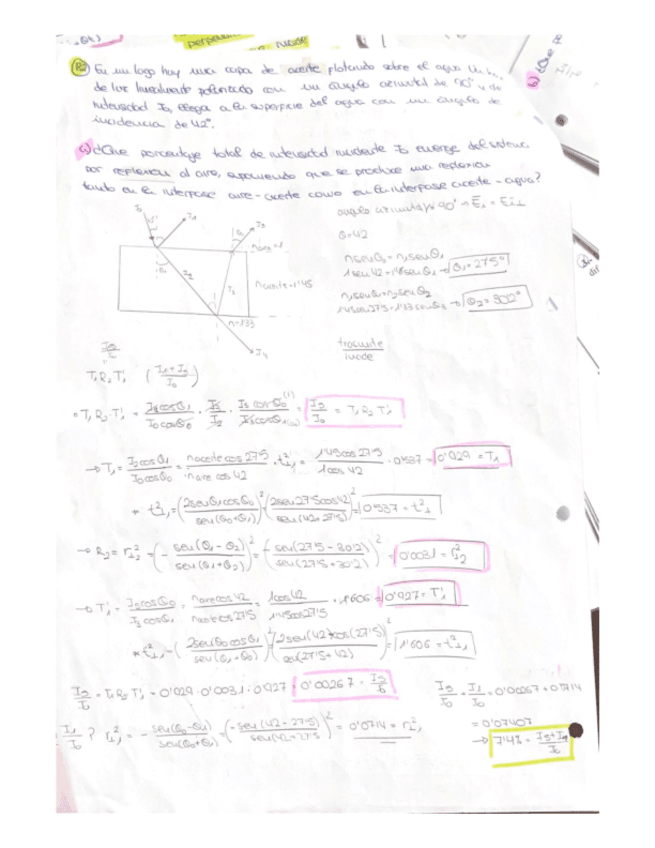 perpendi
En un lago hay una capa de aceite flotando sobre el agua. Un haz
de luz linealmente polarizado con un ángulo azimutal de 90° y de
intensidad I₀, llega a la superficie del agua con un ángulo de
incidencia de 42°.
a) ¿Que porcentaje total de intensidad incidente I₀ emerge del sistema
por reflexión al aire, suponiendo que se produce una reflexión
tanto en la interfase aire-aceite como en la interfase aceite-agua?
angulo azimutal 90° → E₁ = E₁⊥
θ=42
I₀ I₁ I₅
n aire=1
n₀senθ₀ = n₁senθ₁
1 sen 42 = 1'45 senθ₁ → θ₁ = 27'5°
I₂ I₃ n aceite=1'45
n₁senθ₁=n₂senθ₂
1'45sen27'5=1'33senθ₂ → θ₂=30'2°
n=1'33
I₄
transmite
incide
I₅/I₀
T₁R₂T'₁ (I₁+I₅/I₀)
• T₁ R₂ T'₁ = I₂cosθ₁/I₀cosθ₀ · I₃/I₂ · I₅cosθ₀/I₃cosθ₁ = I₅/I₀ = T₁R₂T'₁
→ T₁ = I₂cosθ₁/I₀cosθ₀ = naceite cos 27'5/naire cos 42 · t²⊥ = 1'45cos27'5/1cos42 · 0'537 = 0'929 = T₁
* t²⊥ = (2senθ₁cosθ₀/sen(θ₀+θ₁))² = (2sen27'5cos42/sen(42+27'5))² = 0'537 = t²⊥
→ R₂ = r²⊥₂ = (- sen(θ₁-θ₂)/sen(θ₁+θ₂))² = (- sen(27'5-30'2)/sen(27'5+30'2))² = 0'0031 = r²₂
→ T'₁ = I₅cosθ₀/I₃cosθ₁ = naire cos42/naceite cos27'5 = 1cos42/1'45cos27'5 · 1'606 = 0'927 = T'₁
* t²⊥ = (2senθ₀cosθ₁/sen(θ₁+θ₀))² = (2sen(42)cos(27'5)/sen(27'5+42))² = 1'606 = t²⊥
I₅/I₀ = T₁R₂T'₁ = 0'929 · 0'0031 · 0'927 = 0'00267 = I₅/I₀
I₅/I₀ + I₁/I₀ = 0'00267 + 0'0714
= 0'07407
I₁/I₀? r²⊥ = - sen(θ₀-θ₁)/sen(θ₀+θ₁) = (- sen(42-27'5)/sen(42+27'5))² = 0'0714 = r²⊥
→ 7'4% = I₅+I₁/I₀